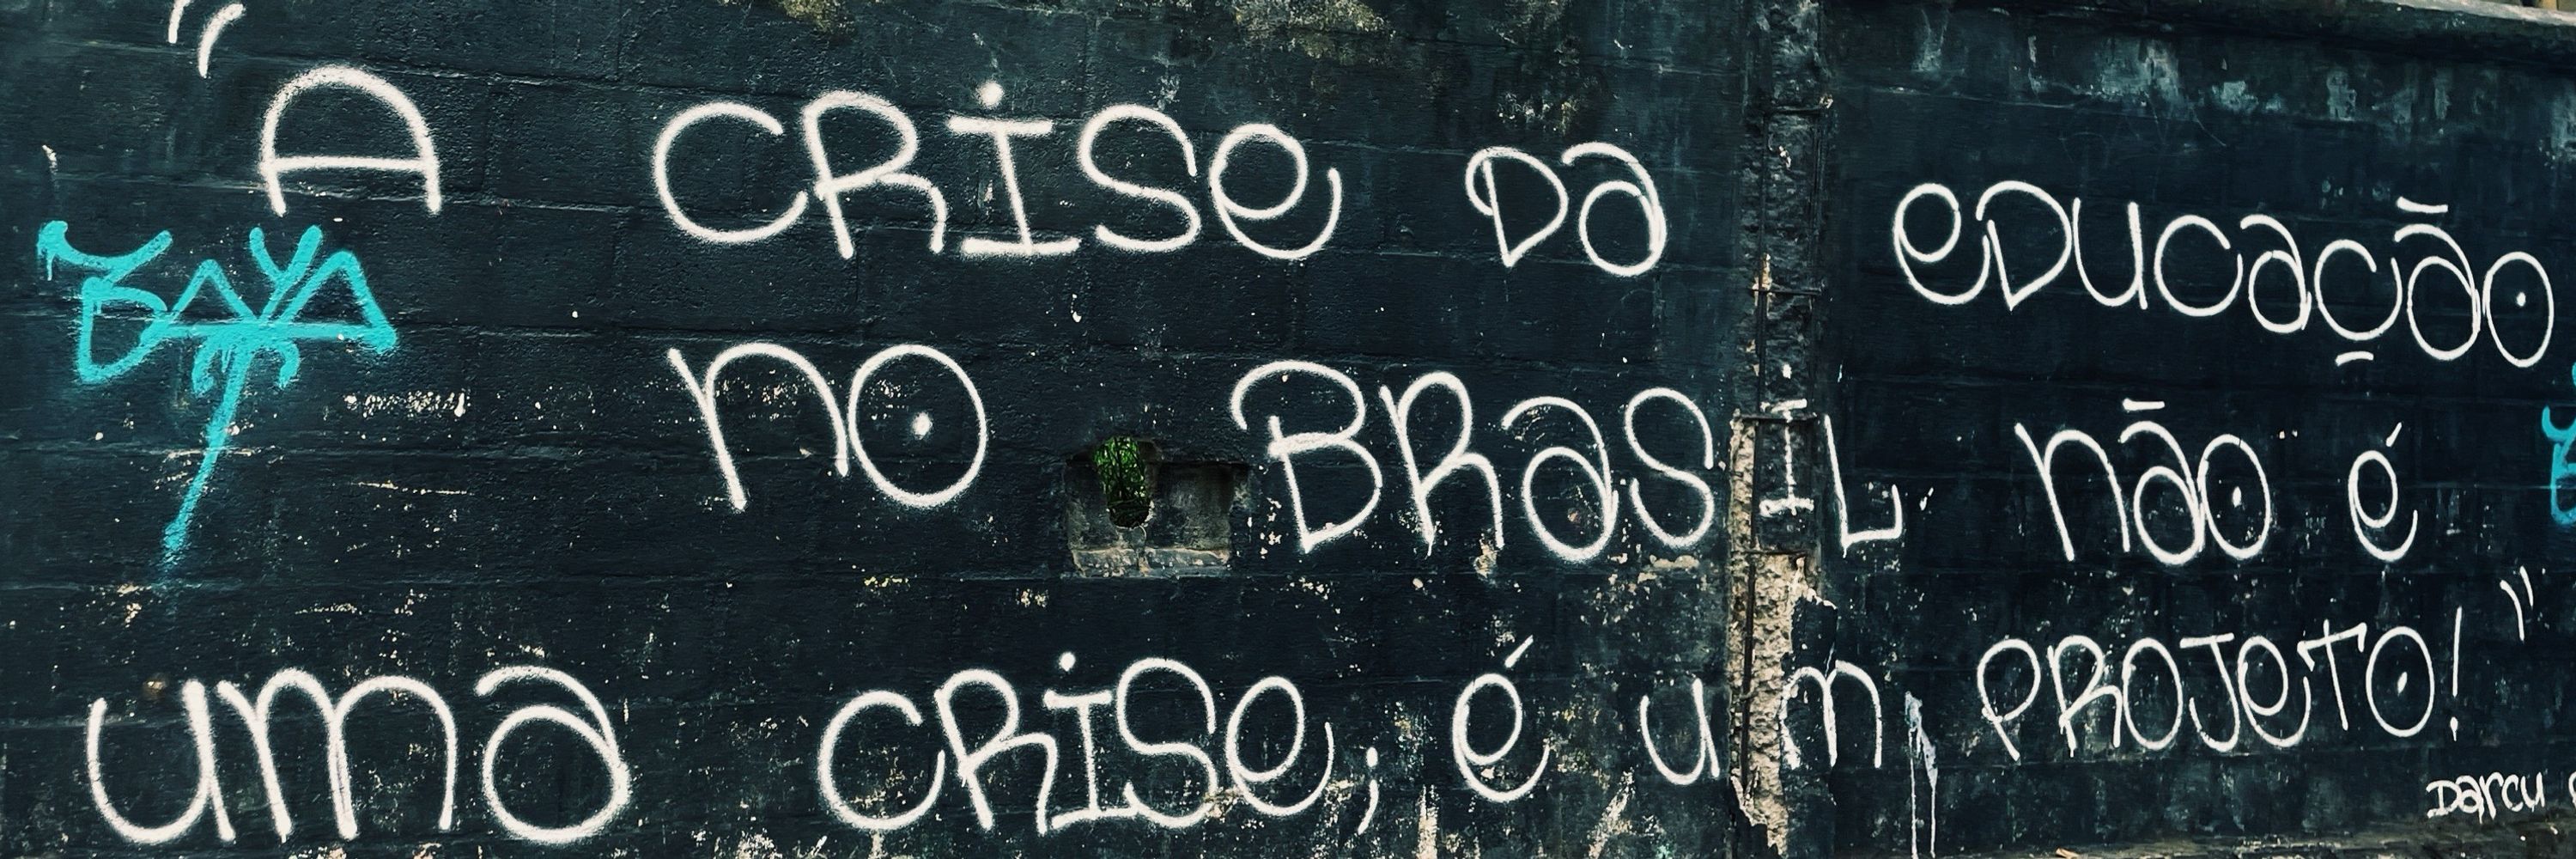 "A CRISE DA EDUCAÇÃO
NO BRASIL NÃO É
UMA CRISE; É UM PROJETO!"
DARCY